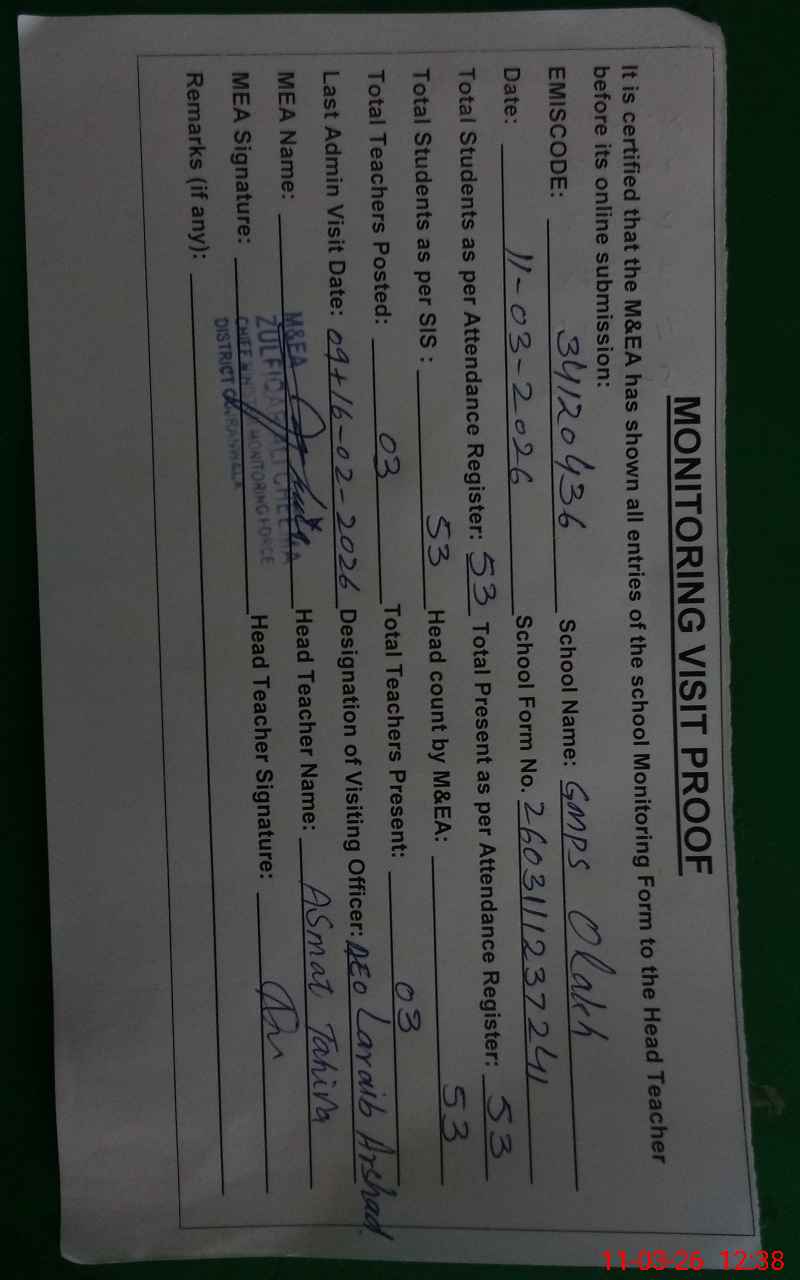 MONITORING VISIT PROOF
It is certified that the M&EA has shown all entries of the school Monitoring Form to the Head Teacher
before its online submission:
EMISCODE: 34120436 School Name: GMPS Olakh
Date: 11-03-2026 School Form No. 260311123724
Total Students as per Attendance Register: 53 Total Present as per Attendance Register: 53
Total Students as per SIS : 53 Head count by M&EA: 53
Total Teachers Posted: 03 Total Teachers Present: 03
Last Admin Visit Date: 09+16-02-2026 Designation of Visiting Officer: AEO Laraib Arshad
MEA Name: Head Teacher Name: Asmat Tahira
MEA Signature: Head Teacher Signature:
Remarks (if any):
M&EA
ZULFIQAR ALI CHEEMA
CHIEF MONITORING FORCE
DISTRICT GUJRANWALA
11-03-26 12:38